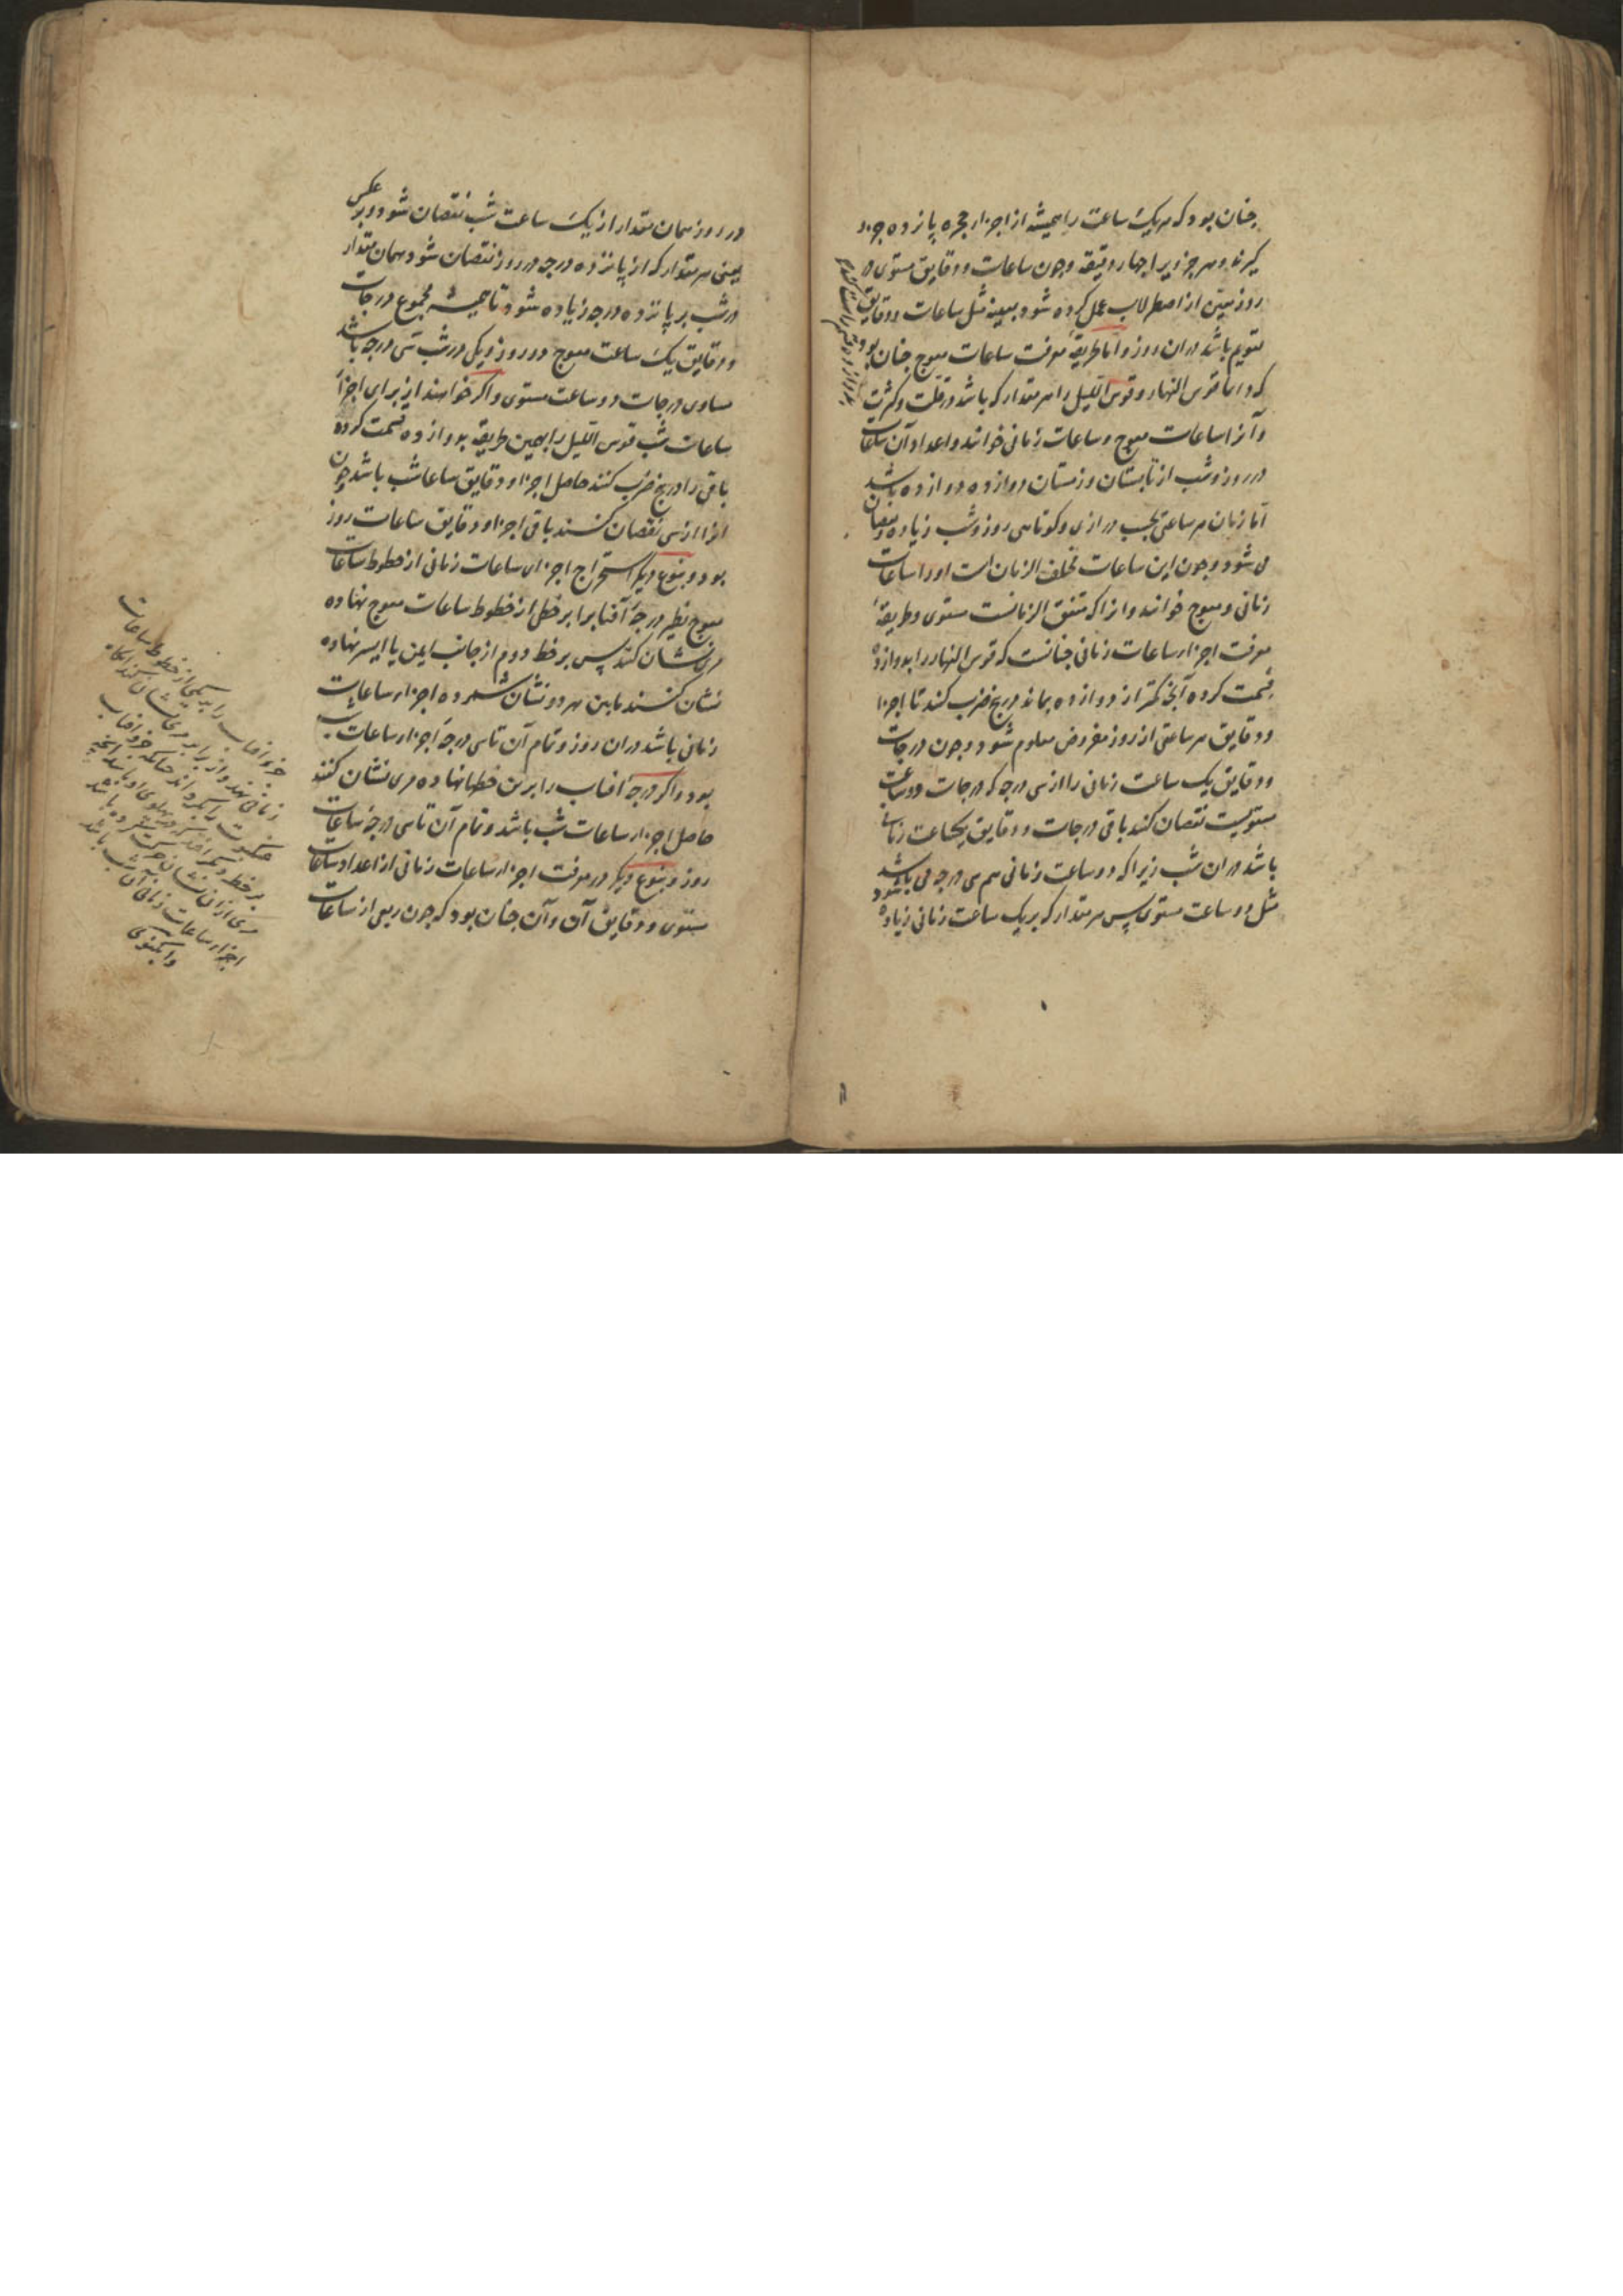 چنان بود که هر یک ساعت را همیشه از اجزاء حجره پانزده جزو
گیرند و هر جزویرا چهار دقیقه و چون ساعات و دقایق مستوی در
روز معین از اصطرلاب عمل کرده شود بعینه مثل ساعات و دقایق
تقویم باشد در ان روز و اما طریقهٔ معرفت ساعات معوج چنان بود
که دایما قوس النهار و قوس اللیل را هر مقدار که باشد در قلت و کثرت
و آنرا ساعات معوج و ساعات زمانی خوانند و اعداد آن ساعات
در روز و شب از تابستان و زمستان دوازده دوازده باشد
اما زمان هر ساعتی بحسب درازی و کوتاهی روز و شب زیاده و نقصان
می شود و چون این ساعات مختلف الزمان است او را ساعات
زمانی و معوج خوانند و انرا که متفق الزمانست مستوی و طریقهٔ
معرفت اجزاء ساعات زمانی چنانست که قوس النهار را بدوازده
قسمت کرده آنچه کمتر از دوازده بماند در پنج ضرب کنند تا اجزا
و دقایق هر ساعتی از روز مفروض معلوم شود و چون درجات
و دقایق یک ساعت زمانی را از سی درجه که درجات دو ساعت
مستویست نقصان کنند باقی درجات و دقایق یکساعت زمانی
باشد در ان شب زیرا که دو ساعت زمانی هم سی درجه می باشد
مثل دو ساعت مستوی پس هر مقدار که بر یک ساعت زمانی زیاده شود
در روز همان مقدار از یک ساعت شب نقصان شود و بر عکس
یعنی هر مقدار که از پانزده درجه در روز نقصان شود همان مقدار
در شب بر پانزده درجه زیاده شود تا همیشه مجموع درجات
و دقایق یک ساعت معوج در روز و یکی در شب سی درجه باشد
مساوی درجات دو ساعت مستوی و اگر خواهند از برای اجزاء
ساعات شب قوس اللیل را بهمین طریقه بدوازده قسمت کرده
باقی را در پنج ضرب کنند حاصل اجزا و دقایق ساعات شب باشد چون
انرا از سی نقصان کنند باقی اجزا و دقایق ساعات روز
بود و بنوع دیگر استخراج اجزای ساعات زمانی از خطوط ساعات
معوج نظیر درجهٔ آفتاب را بر خطی از خطوط ساعات معوج نهاده
مری نشان کنند پس بر خط دوم از جانب ایمن یا ایسر نهاده
نشان کنند مابین هر دو نشان شمرده اجزاء ساعات
زمانی باشد در ان روز و تمام آن تا سی درجه اجزاء ساعات شب
بود و اگر درجهٔ آفتاب را برین خطها نهاده مری نشان کنند
حاصل اجزاء ساعات شب باشد و تمام آن تا سی درجه ساعات
روز و بنوع دیگر در معرفت اجزاء ساعات زمانی از اعداد ساعات
مستوی و دقایق آن و آن چنان بود که چون ربعی از ساعات
جزو افتاب را بر یکی از خطوط ساعات
زمانی نهند و از برابر مری نشان کنند
عنکبوت را بگردانند چنانکه جزو افتاب
بر خط دیگر افتد که در پهلوی او باشد آنچه
مری از ان نشان حرکت کرده باشد
اجزاء ساعات زمانی آن شب باشد